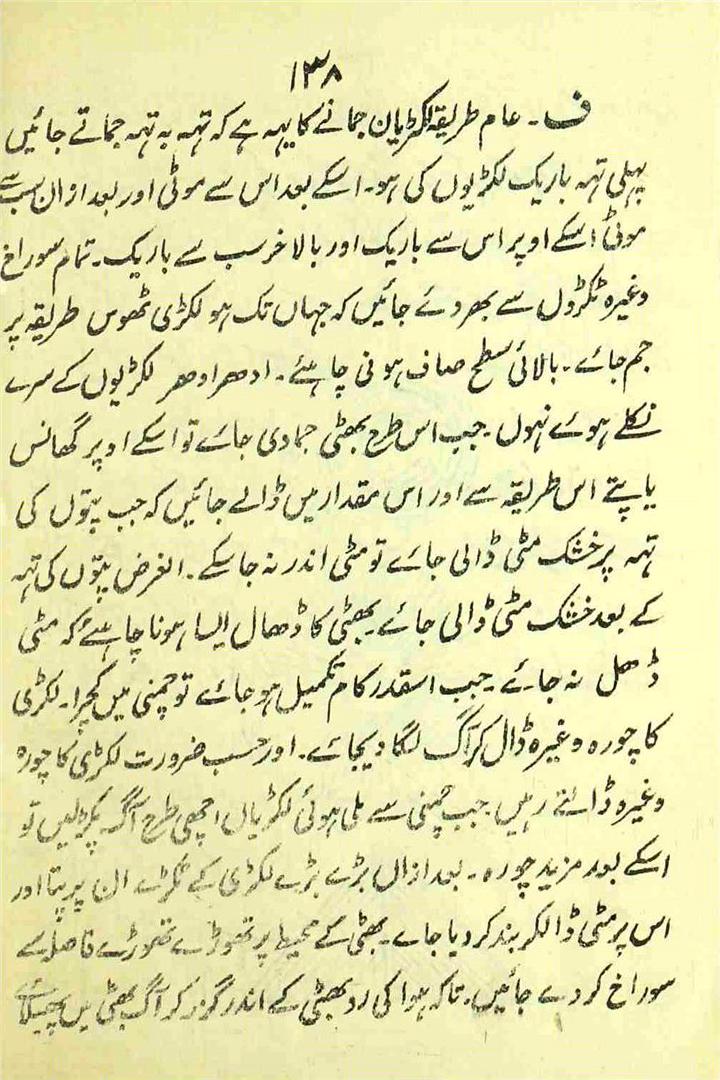 ۱۳۸
ف۔ عام طریقہ لکڑیان جمانے کا یہہ ہے کہ تہہ بہ تہہ جماتے جائیں
پہلی تہہ باریک لکڑیوں کی ہو۔ اسکے بعد اس سے موٹی اور بعد ازان سب سے
موٹی اسکے اوپر اس سے باریک اور بالاخر سب سے باریک۔ تمام سوراخ
وغیرہ ٹکڑوں سے بھر دئے جائیں کہ جہاں تک ہو لکڑی ٹھوس طریقہ پر
جم جائے۔ بالائی سطح صاف ہونی چاہئے۔ ادھر ادھر لکڑیوں کے سرے
نکلے ہوئے نہوں۔ جب اس طرح بھٹی جمادی جائے تو اسکے اوپر گھانس
یا پتے اس طریقہ سے اور اس مقدار میں ڈالے جائیں کہ جب پتوں کی
تہہ پر خشک مٹی ڈالی جائے تو مٹی اندر نہ جا سکے۔ الغرض پتوں کی تہہ
کے بعد خشک مٹی ڈالی جائے۔ بھٹی کا ڈھال ایسا ہونا چاہئے کہ مٹی
ڈھل نہ جائے۔ جب اسقدر کام تکمیل ہو جائے تو چمنی میں کچرا۔ لکڑی
کا چورہ وغیرہ ڈال کر آگ لگا دیجائے۔ اور حسب ضرورت لکڑی کا چورہ
وغیرہ ڈالتے رہیں۔ جب چمنی سے ملی ہوئی لکڑیاں اچھی طرح آگ پکڑ لیں تو
اسکے بعد مزید چورہ۔ بعد ازاں بڑے بڑے لکڑی کے ٹکڑے ان پر پتا اور
اس پر مٹی ڈالکر بند کر دیا جاے۔ بھٹی کے محیط پر تھوڑے تھوڑے فاصلے سے
سوراخ کر دے جائیں۔ تاکہ ہوا کی رو بھٹی کے اندر گزر کر آگ بھٹی میں پھیلائے